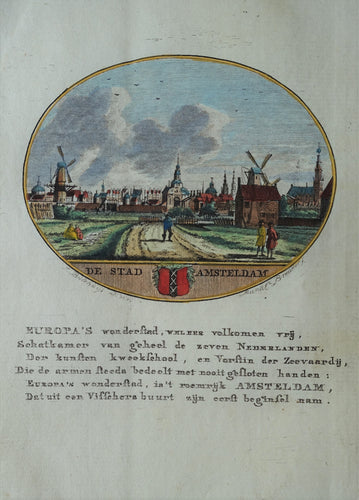 DE STAD AMSTELDAM
EUROPA'S wonderstad, WELEER volkomen vrij,
Schatkamer van geheel de zeven NEDERLANDEN,
Der kunsten kweekschool, en Vorstin der Zeevaardij,
Die de armen steeds bedeelt met nooit gesloten handen:
EUROPA'S wonderstad, is't roemrijk AMSTELDAM,
Dat uit een Visschers buurt zijn eerst beginsel nam.